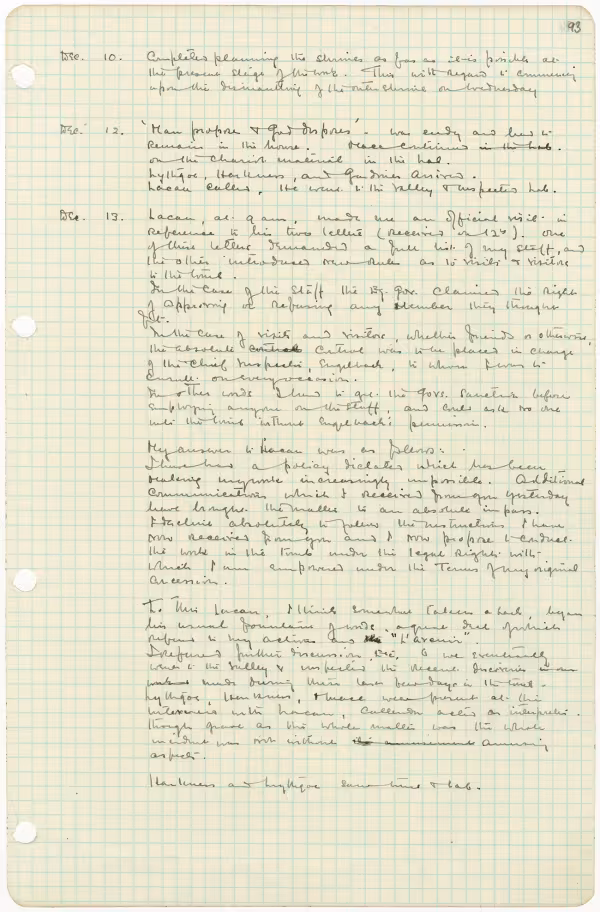 93
Dec. 10. Completed planning the shrines as far as it is possible at
the present stage of the work. This with regard to commencing
upon the dismantling of the outer shrine on Wednesday
Dec. 12. 'Man propose & God disposes' - was seedy and had to
remain in the house. Mace continued in the lab.
on the chariot material in the lab.
Lythgoe, Harkness, and Gardiner arrived.
Lacau called, He went to the Valley & inspected lab.
Dec. 13. Lacau, at 9 am, made me an official visit in
reference to his two letters (received on 12th). One
of these letters demanded a full list of my staff, and
the other introduced new rules as to visits & visitors
to the tomb.
In the case of the staff the Eg. Gov. claimed the right
of approving or refusing any member they thought
fit.
In the case of visits and visitors, whether friends or otherwise,
the absolute control Cntrol was to be placed in charge
of the Chief Inspector, Engelbach, to whom I was to
consult on every occasion.
In other words I had to get the Govs. sanction before
employing anyone on the staff, and could ask no one
into the tomb without Engelbach's permission.
My answer to Lacau was as follows:-
I have had a policy dictated which has been
making my work increasingly impossible. Additional
communications which I received from you yesterday
have brought the matter to an absolute impass.
I decline absolutely to follow the instructions I have
now received from you and I now propose to conduct
the work in the tomb under the legal rights with
which I am empowered under the terms of my original
concession.
To this Lacau, I think somewhat taken aback, began
his usual fountain of words, a great deal of which
referred to my actions and "L'avenir".
I refused further discussion, Etc. & we eventually
went to the Valley & inspected the recent discoveries in our
work made during these last few days in the tomb.
Lythgoe, Harkness, & Mace were present at this
interview with Lacau, Callender acted as interpreter.
Though grave as this whole matter was the whole
incident was not without its amusement amusing
aspects.
Harkness and Lythgoe saw tomb & lab.